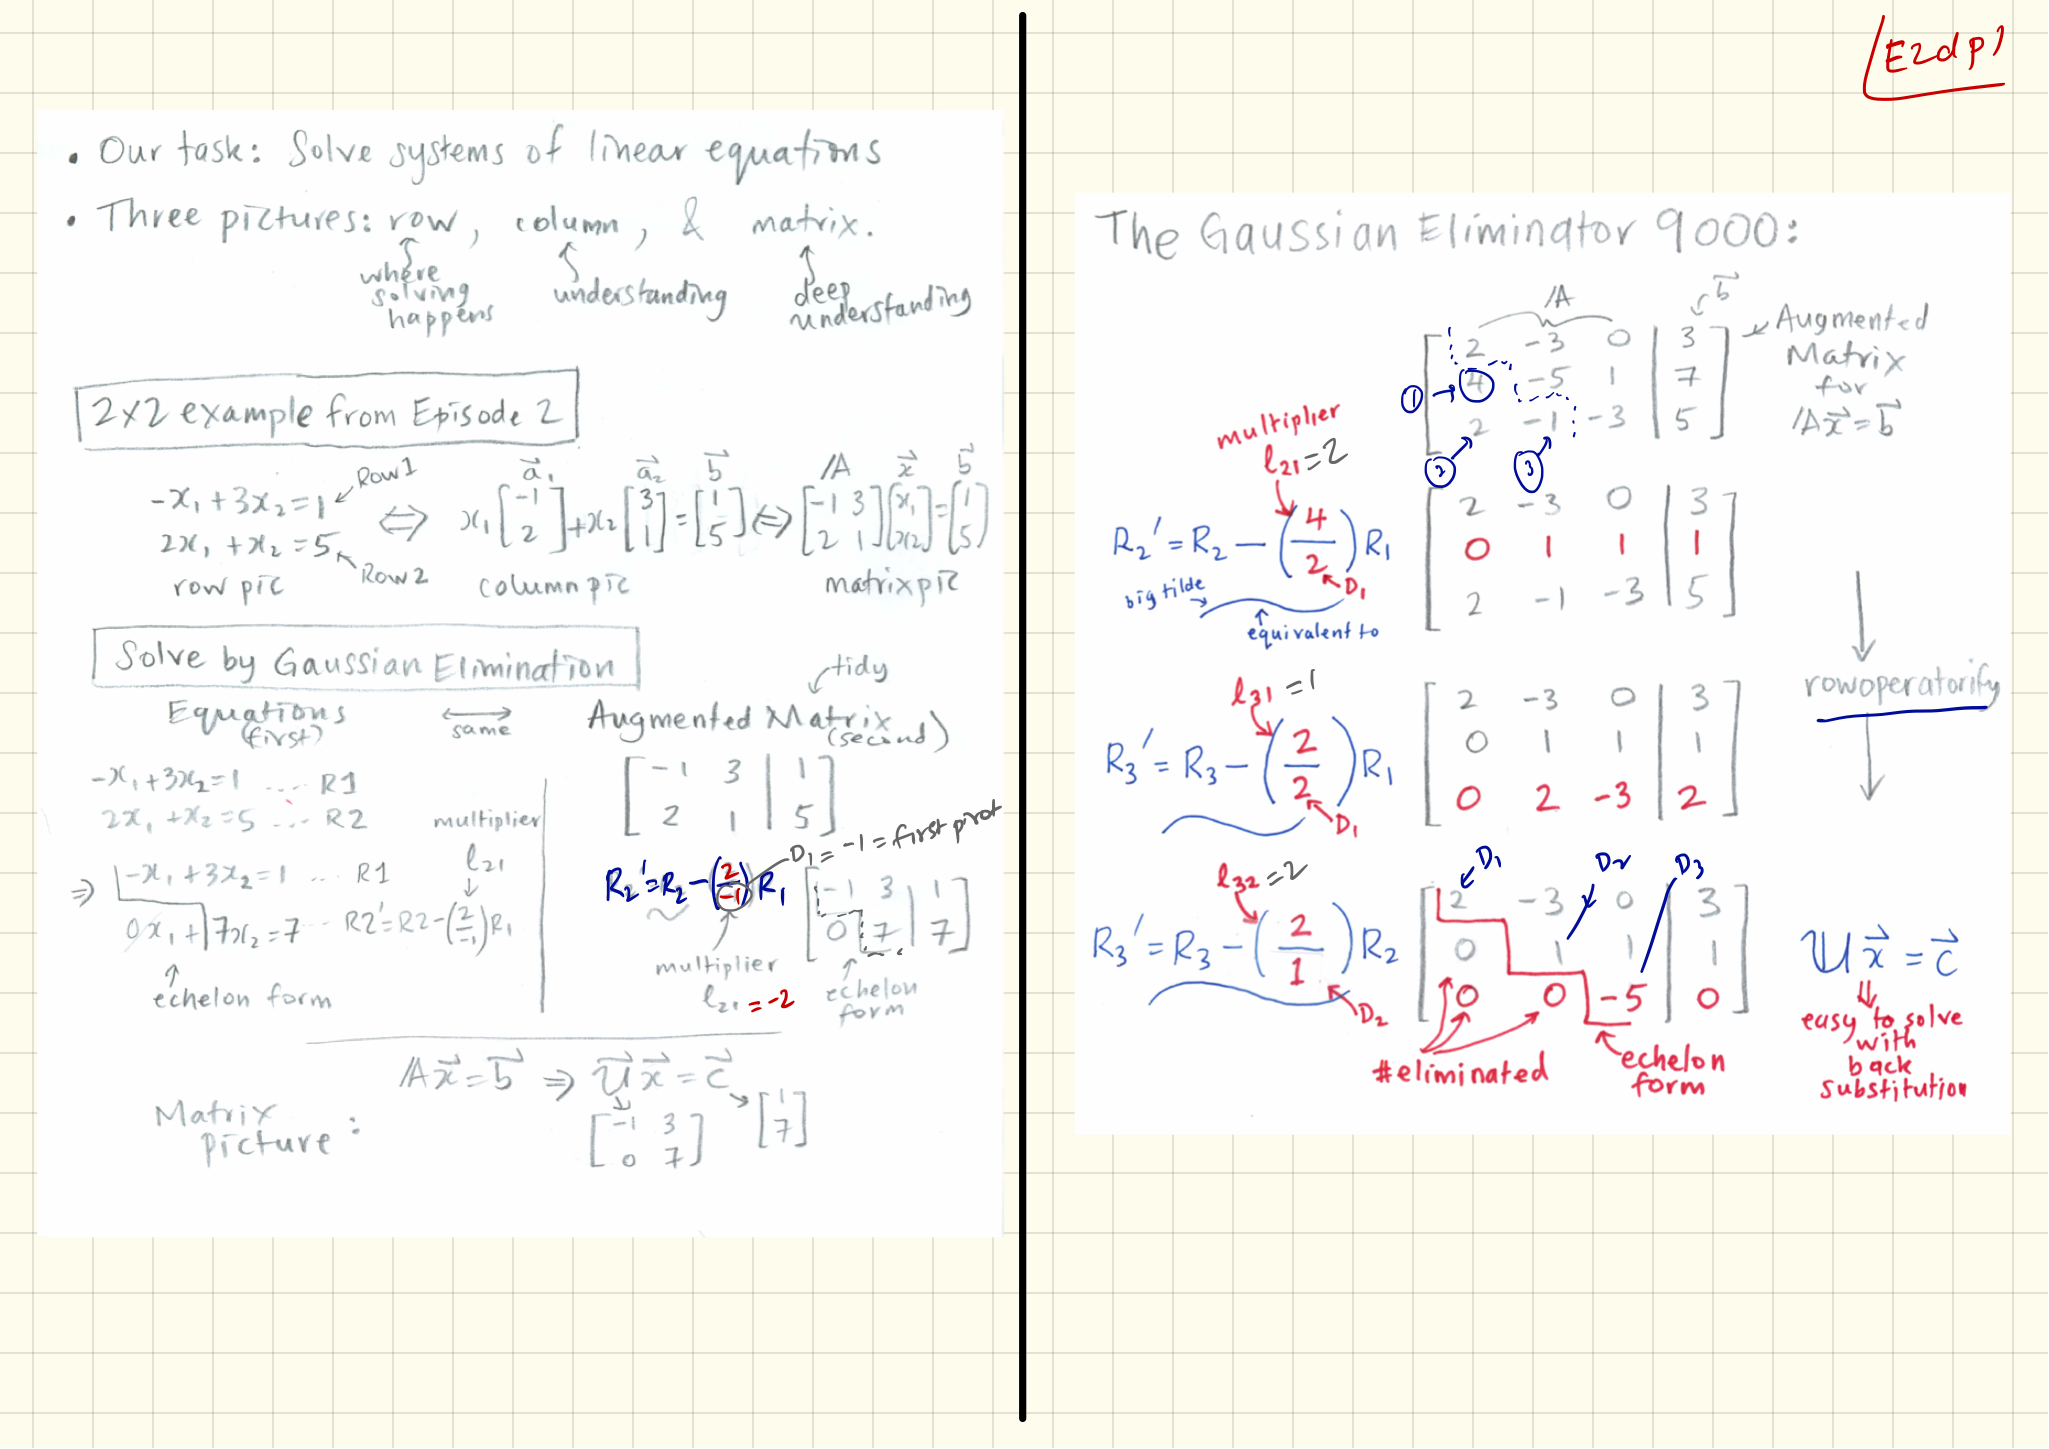 E2dp1
• Our task: Solve systems of linear equations
• Three pictures: row, column, & matrix.
where solving happens
understanding
deep understanding
2x2 example from Episode 2
-x₁ + 3x₂ = 1 Row 1
2x₁ + x₂ = 5 Row 2
row pic
⇔ x₁ [-1 2] + x₂ [3 1] = [1 5]
a⃗₁ a⃗₂ b⃗
column pic
⇔ [-1 3 2 1] [x₁ x₂] = [1 5]
A x⃗ b⃗
matrix pic
Solve by Gaussian Elimination
Equations (first) ⟷ same Augmented Matrix (second)
tidy
-x₁ + 3x₂ = 1 .... R1
2x₁ + x₂ = 5 ... R2
multiplier
l₂₁
⇒ -x₁ + 3x₂ = 1 ... R1
0x₁ + 7x₂ = 7 ... R2' = R2 - (2/-1) R1
echelon form
[-1 3 | 1
2 1 | 5]
D₁ = -1 = first pivot
R₂' = R₂ - (2/-1) R₁
~
[-1 3 | 1
0 7 | 7]
multiplier
l₂₁ = -2
echelon form
Ax⃗ = b⃗ ⇒ Ux⃗ = c⃗
Matrix picture:
[-1 3
0 7]
[1
7]
The Gaussian Eliminator 9000:
A b⃗
[2 -3 0 | 3
① → 4 -5 1 | 7
2 -1 -3 | 5]
② ③
Augmented Matrix for Ax⃗ = b⃗
multiplier
l₂₁ = 2
R₂' = R₂ - (4/2) R₁
D₁
big tilde
equivalent to
[2 -3 0 | 3
0 1 1 | 1
2 -1 -3 | 5]
rowoperatorify
l₃₁ = 1
R₃' = R₃ - (2/2) R₁
D₁
[2 -3 0 | 3
0 1 1 | 1
0 2 -3 | 2]
l₃₂ = 2
R₃' = R₃ - (2/1) R₂
D₂
D₁ D₂ D₃
[2 -3 0 | 3
0 1 1 | 1
0 0 -5 | 0]
#eliminated
echelon form
Ux⃗ = c⃗
⇓
easy to solve
with
back
substitution